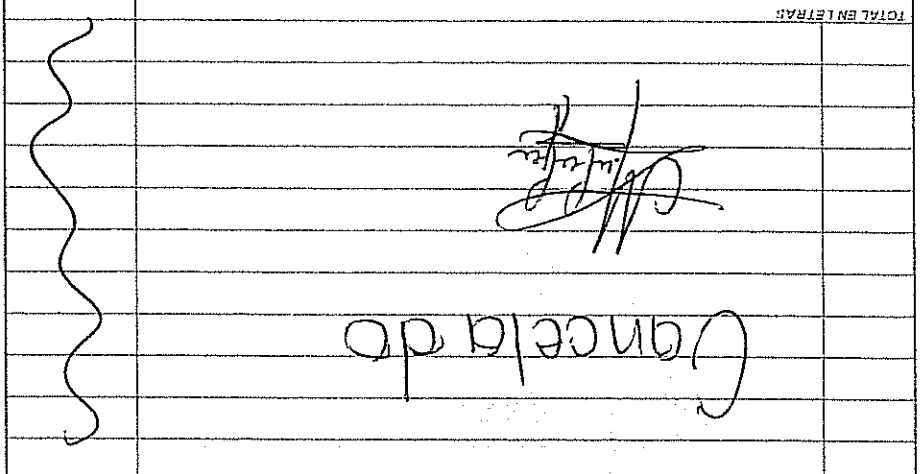 Cancelado
TOTAL EN LETRAS